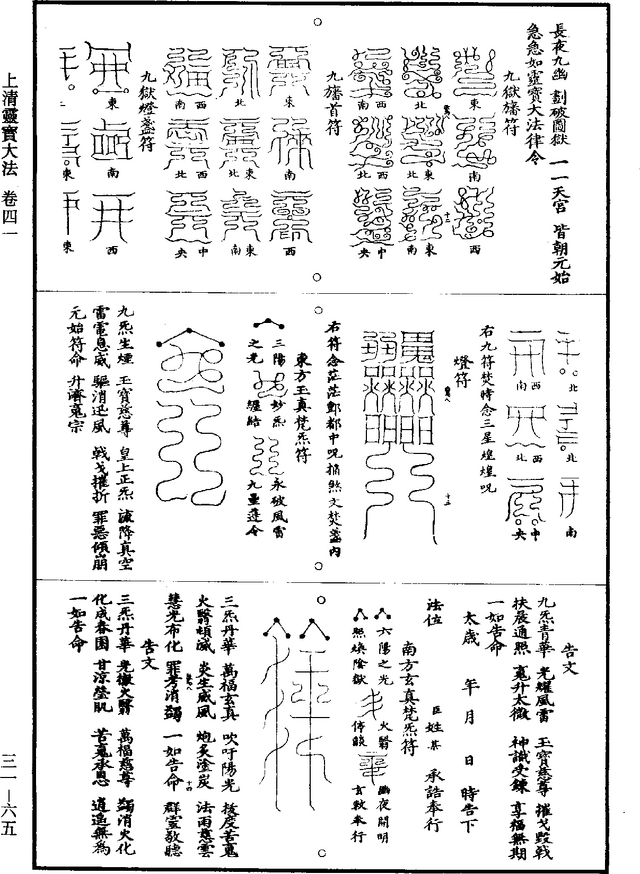 長夜九幽 劃破圖獄 一一天宮 皆朝元始
急急如靈寶大法律令
九獄旛符
東
南
西
北
北東
東南
西南
西北
中央
九旛首符
東
南
西
北
北東
東南
西南
西北
中央
九獄燈盞符
東
南
西
東
東
東
北
北
南
西南
西北
中央
右九符焚時念三星煌煌呪
燈符
右符念茫茫酆都中呪搯煞文焚盞內
東方玉真梵炁符
三陽 妙炁 永破風雷
之光 纏結 九壘蓬令
九炁生煙 玉寶慈尊 皇上正炁 諫降真空
雷電息威 驅消迅風 戟戈摧折 罪惡傾崩
元始符命 升濟䰟宗
告文
九炁青華 光耀風雷 玉寶慈尊 摧戈毀戟
扶晨通照 䰟升太微 神識受鍊 享福無期
一如告命
太歲 年 月 日 時告下
法位 臣姓某 承誥奉行
南方玄真梵炁符
六陽之光 火翳 幽夜開明
照煥陰獄 停燄 玄敕奉行
三炁丹華 萬福玄真 吹吁陽光 拔度苦䰟
火翳頓滅 炎生威風 炮炙塗炭 法雨慈雲
慧光布化 罪考消蠲 一如告命 群靈敬聽
告文
三炁丹華 光徹火翳 萬福慈尊 蠲消火化
化成春園 甘涼瑩肌 苦䰟承恩 逍遙無為
一如告命
上清靈寶大法 卷四一
三一—六五